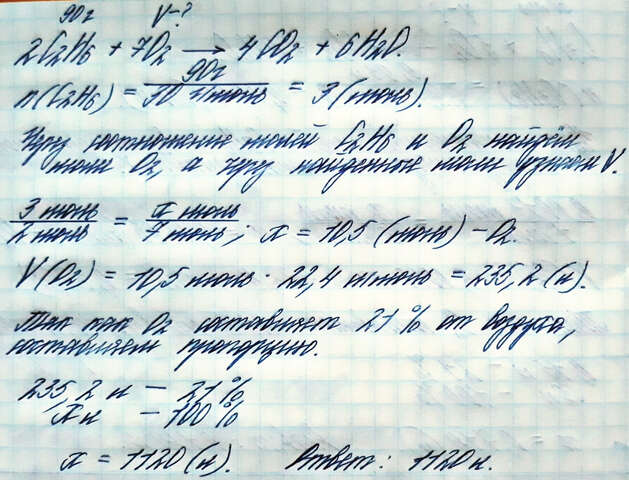 90г V-?
2C2H6 + 7O2 → 4CO2 + 6H2O.
n(C2H6) = 90г / 30 г/моль = 3 (моль).
Через соотношение молей C2H6 и O2 найдём
моли O2, а через найденные моли узнаем V.
3 моль / 2 моль = x моль / 7 моль; x = 10,5 (моль) – O2.
V(O2) = 10,5 моль · 22,4 л/моль = 235,2 (л).
Так как O2 составляет 21% от воздуха,
составляем пропорцию.
235,2 л – 21%
x л – 100%
x = 1120 (л). Ответ: 1120 л.